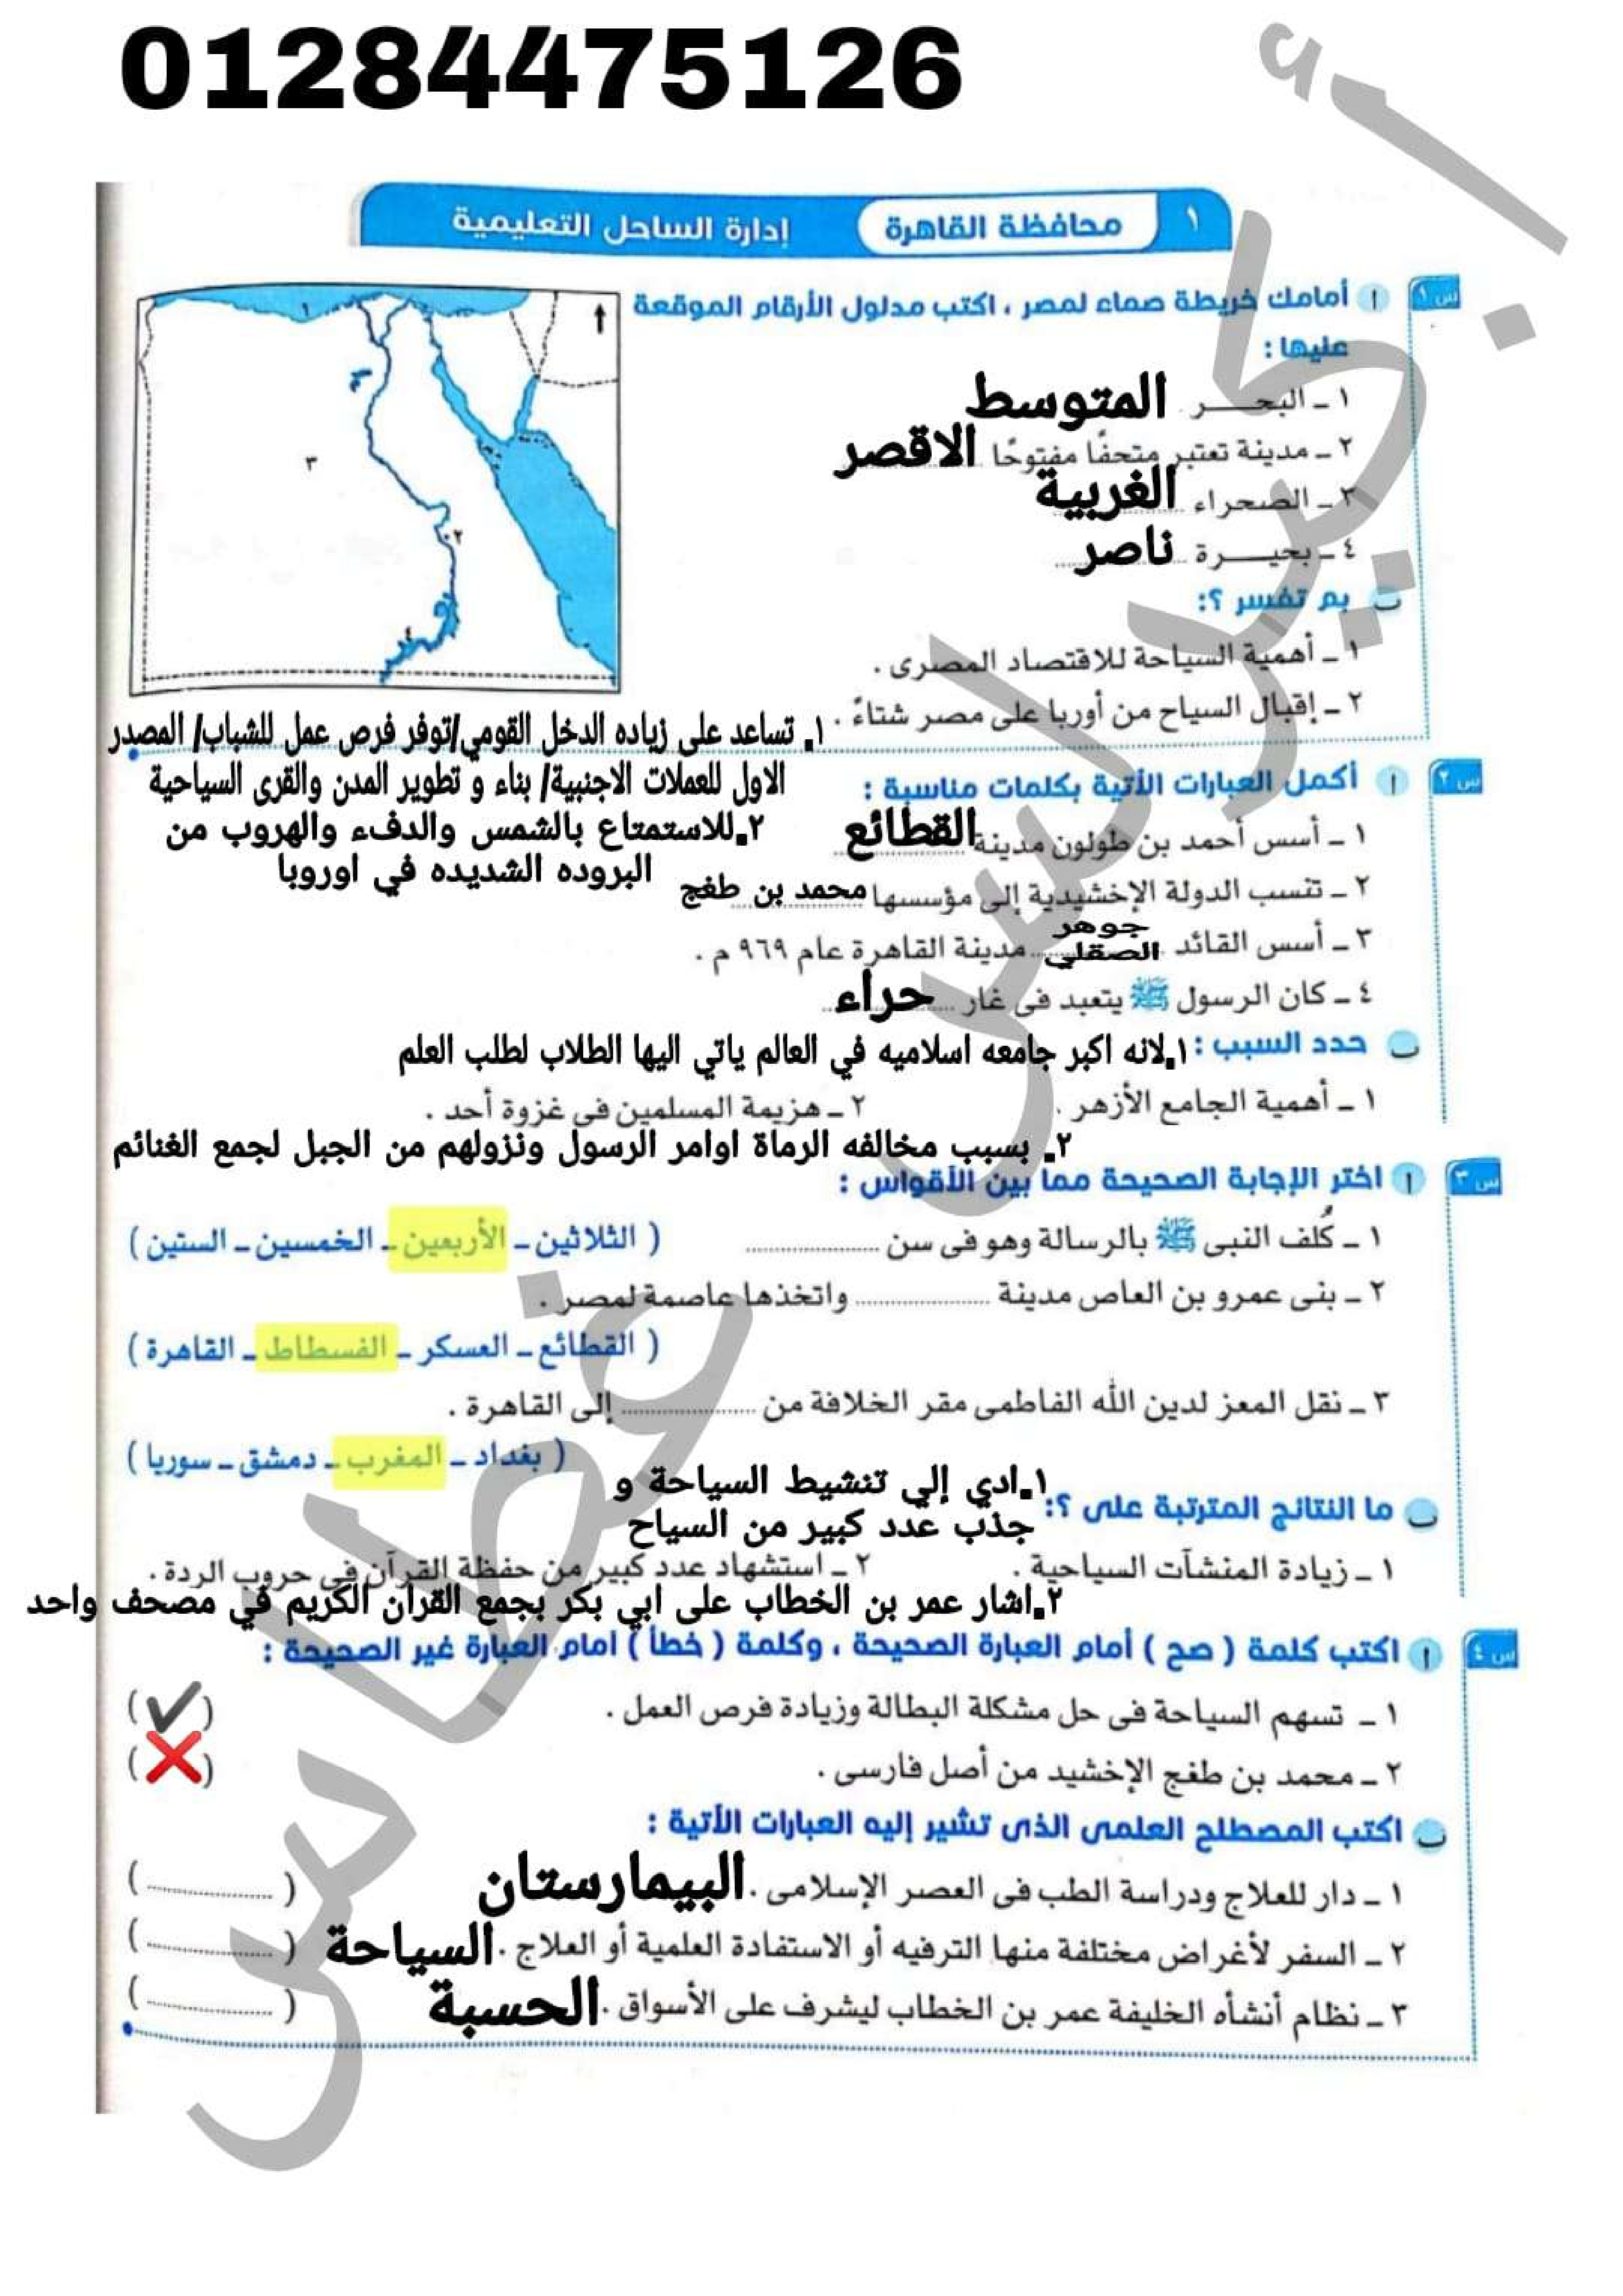 01284475126
١ محافظة القاهرة إدارة الساحل التعليمية
س ١ أ أمامك خريطة صماء لمصر ، اكتب مدلول الأرقام الموقعة
عليها :
١ ـ البحـــر المتوسط
٢ ـ مدينة تعتبر متحفًا مفتوحًا الاقصر
٣ ـ الصحراء الغربية
٤ ـ بحيـــرة ناصر
١
٣
٢
٤
ب بم تفسر ؟:
١ ـ أهمية السياحة للاقتصاد المصرى .
٢ ـ إقبال السياح من أوربا على مصر شتاءً .
١. تساعد على زياده الدخل القومي/توفر فرص عمل للشباب/ المصدر
الاول للعملات الاجنبية/ بناء و تطوير المدن والقرى السياحية
٢.للاستمتاع بالشمس والدفء والهروب من
البروده الشديده في اوروبا
س ٢ أ أكمل العبارات الأتية بكلمات مناسبة :
١ ـ أسس أحمد بن طولون مدينة القطائع
٢ ـ تنسب الدولة الإخشيدية إلى مؤسسها محمد بن طغج
٣ ـ أسس القائد جوهر الصقلي مدينة القاهرة عام ٩٦٩ م .
٤ ـ كان الرسول ﷺ يتعبد فى غار حراء
ب حدد السبب : ١.لانه اكبر جامعه اسلاميه في العالم ياتي اليها الطلاب لطلب العلم
١ ـ أهمية الجامع الأزهر . ٢ ـ هزيمة المسلمين فى غزوة أحد .
٢. بسبب مخالفه الرماة اوامر الرسول ونزولهم من الجبل لجمع الغنائم
س ٣ أ اختر الإجابة الصحيحة مما بين الأقواس :
١ ـ كُلف النبى ﷺ بالرسالة وهو فى سن .................... ( الثلاثين ـ الأربعين ـ الخمسين ـ الستين )
٢ ـ بنى عمرو بن العاص مدينة .................... واتخذها عاصمة لمصر .
( القطائع ـ العسكر ـ الفسطاط ـ القاهرة )
٣ ـ نقل المعز لدين الله الفاطمى مقر الخلافة من .................... إلى القاهرة .
( بغداد ـ المغرب ـ دمشق ـ سوريا )
ب ما النتائج المترتبة على ؟: ١.ادي إلي تنشيط السياحة و
جذب عدد كبير من السياح
١ ـ زيادة المنشآت السياحية . ٢ ـ استشهاد عدد كبير من حفظة القرآن فى حروب الردة .
٢.اشار عمر بن الخطاب على ابي بكر بجمع القران الكريم في مصحف واحد
س ٤ أ اكتب كلمة ( صح ) أمام العبارة الصحيحة ، وكلمة ( خطأ ) أمام العبارة غير الصحيحة :
١ ـ تسهم السياحة فى حل مشكلة البطالة وزيادة فرص العمل . (✔)
٢ ـ محمد بن طغج الإخشيد من أصل فارسى . (❌)
ب اكتب المصطلح العلمى الذى تشير إليه العبارات الأتية :
١ ـ دار للعلاج ودراسة الطب فى العصر الإسلامى . البيمارستان (....................)
٢ ـ السفر لأغراض مختلفة منها الترفيه أو الاستفادة العلمية أو العلاج . السياحة (....................)
٣ ـ نظام أنشأه الخليفة عمر بن الخطاب ليشرف على الأسواق . الحسبة (....................)
أ. كيرلس غطاس